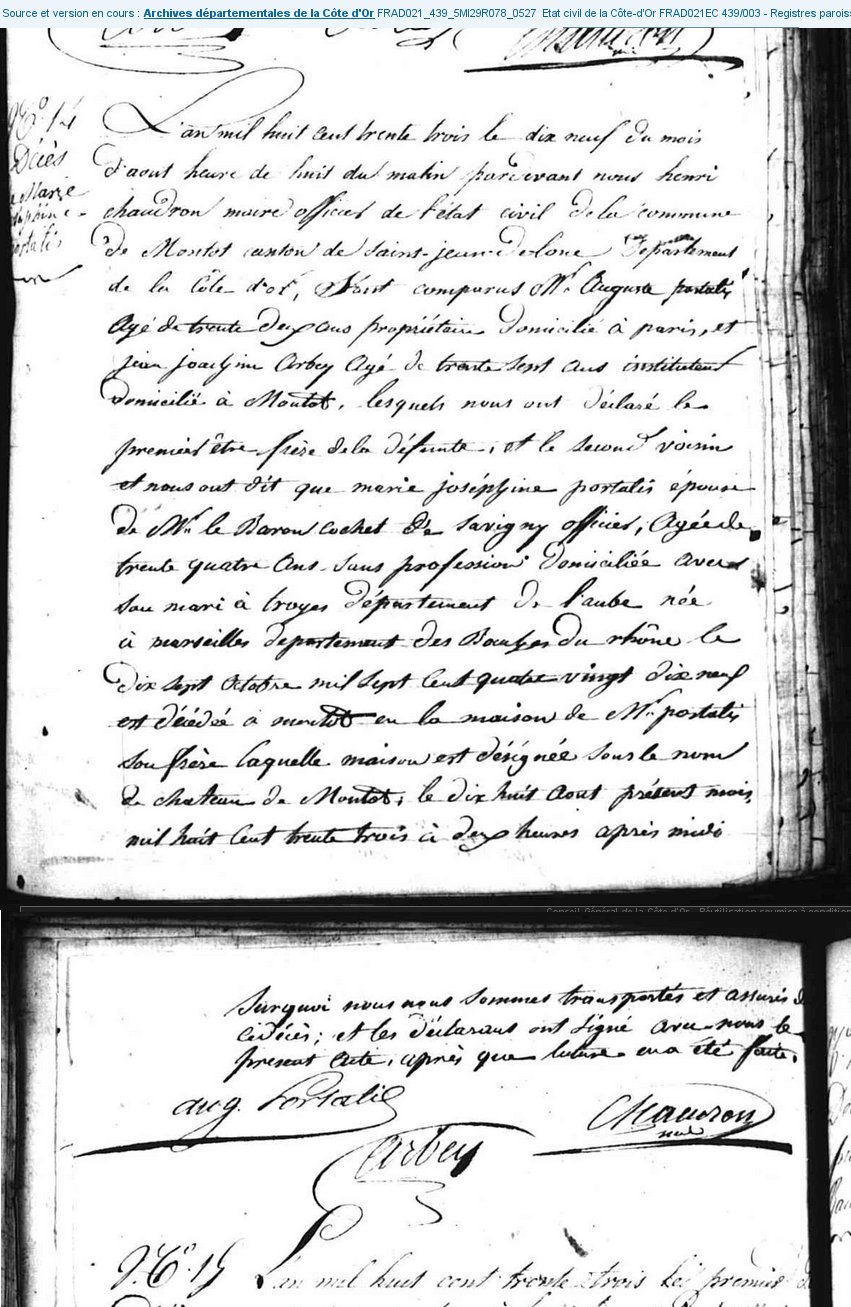 Source et version en cours : Archives départementales de la Côte d'Or FRAD021_439_5MI29R078_0527 Etat civil de la Côte-d'Or FRAD021EC 439/003 - Registres parois
N.° 14
Décès
Marie
portalis
L'an mil huit cent trente trois le dix neuf du mois
d'aout heure de huit du matin pardevant nous henri
chaudron maire officier de l'état civil de la commune
de Montot canton de Saint-jean-de-lone Departement
de la Côte d'or, Sont comparus Mr. Auguste portalis
Agé de trente deux ans propriétaire domicilié à paris, et
jean joachim Arbey Agé de trente sept ans instituteur
Domicilié à Montot, lesquels nous ont déclaré le
premier être frère de la défunte, et le second voisin
et nous ont dit que marie joséphine portalis épouse
de Mr. le Baron Cochet de Savigny officier, Agée de
trente quatre ans sans profession domiciliée avec
son mari à troyes département de l'aube née
à marseilles département des Bouches du rhône le
dix sept octobre mil sept cent quatre vingt dix neuf
est décédée à montot en la maison de Mr. portalis
son frère laquelle maison est désignée sous le nom
de chateau de Montot, le dix huit aout présent mois,
mil huit cent trente trois à deux heures après midi
Conseil Général de la Côte d'Or - Réutilisation soumise à condition
Surquoi nous nous sommes transportés et assurés
décès; et les déclarans ont signé avec nous le
present acte, après que lecture en a été faite.
aug. Portalis
Chaudron
Arbey
N.° 15 L'an mil huit cent trente trois le premier